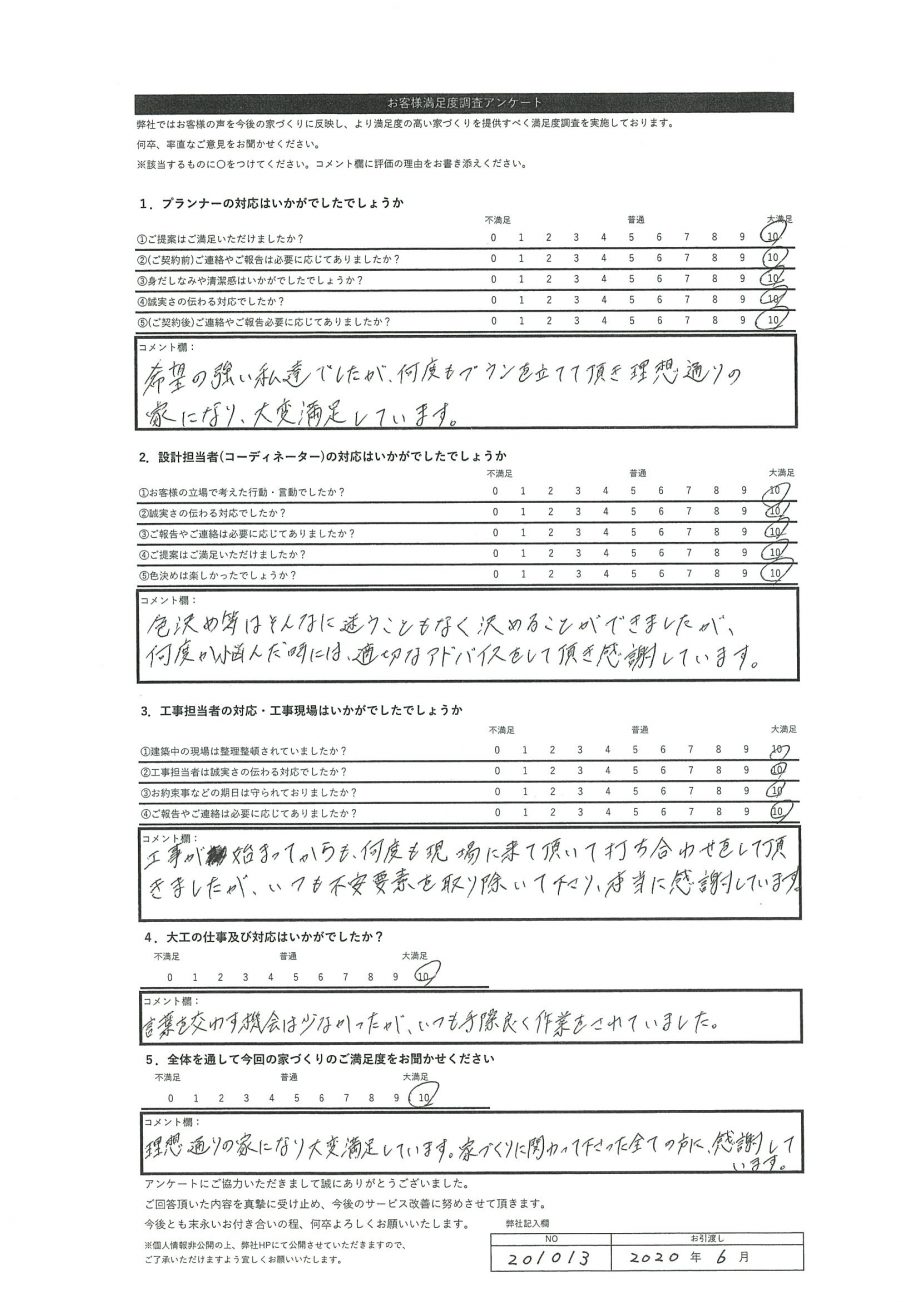 お客様満足度調査アンケート
弊社ではお客様の声を今後の家づくりに反映し、より満足度の高い家づくりを提供すべく満足度調査を実施しております。
何卒、率直なご意見をお聞かせください。
※該当するものに〇をつけてください。コメント欄に評価の理由をお書き添えください。
１．プランナーの対応はいかがでしたでしょうか
不満足 普通 大満足
①ご提案はご満足いただけましたか？ 0 1 2 3 4 5 6 7 8 9 10
②(ご契約前)ご連絡やご報告は必要に応じてありましたか？ 0 1 2 3 4 5 6 7 8 9 10
③身だしなみや清潔感はいかがでしたでしょうか？ 0 1 2 3 4 5 6 7 8 9 10
④誠実さの伝わる対応でしたか？ 0 1 2 3 4 5 6 7 8 9 10
⑤(ご契約後)ご連絡やご報告必要に応じてありましたか？ 0 1 2 3 4 5 6 7 8 9 10
コメント欄：
希望の強い私達でしたが、何度もプランを立てて頂き理想通りの
家になり、大変満足しています。
２．設計担当者(コーディネーター)の対応はいかがでしたでしょうか
不満足 普通 大満足
①お客様の立場で考えた行動・言動でしたか？ 0 1 2 3 4 5 6 7 8 9 10
②誠実さの伝わる対応でしたか？ 0 1 2 3 4 5 6 7 8 9 10
③ご報告やご連絡は必要に応じてありましたか？ 0 1 2 3 4 5 6 7 8 9 10
④ご提案はご満足いただけましたか？ 0 1 2 3 4 5 6 7 8 9 10
⑤色決めは楽しかったでしょうか？ 0 1 2 3 4 5 6 7 8 9 10
コメント欄：
色決め等はそんなに迷うこともなく決めることができましたが、
何度か悩んだ時には、適切なアドバイスをして頂き感謝しています。
３．工事担当者の対応・工事現場はいかがでしたでしょうか
不満足 普通 大満足
①建築中の現場は整理整頓されていましたか？ 0 1 2 3 4 5 6 7 8 9 10
②工事担当者は誠実さの伝わる対応でしたか？ 0 1 2 3 4 5 6 7 8 9 10
③お約束事などの期日は守られておりましたか？ 0 1 2 3 4 5 6 7 8 9 10
④ご報告やご連絡は必要に応じてありましたか？ 0 1 2 3 4 5 6 7 8 9 10
コメント欄：
工事が始まってからも、何度も現場に来て頂いて打ち合わせをして頂
きましたが、いつも不安要素を取り除いて下さり、本当に感謝しています。
４．大工の仕事及び対応はいかがでしたか？
不満足 普通 大満足
0 1 2 3 4 5 6 7 8 9 10
コメント欄：
言葉を交わす機会は少なかったが、いつも手際良く作業をされていました。
５．全体を通して今回の家づくりのご満足度をお聞かせください
不満足 普通 大満足
0 1 2 3 4 5 6 7 8 9 10
コメント欄：
理想通りの家になり大変満足しています。家づくりに関わって下さった全ての方に、感謝して
います。
アンケートにご協力いただきまして誠にありがとうございました。
ご回答頂いた内容を真摯に受け止め、今後のサービス改善に努めさせて頂きます。
今後とも末永いお付き合いの程、何卒よろしくお願いいたします。
弊社記入欄
※個人情報非公開の上、弊社HPにて公開させていただきますので、
ご了承いただけますよう宜しくお願いいたします。
NO お引渡し
201013 2020 年 6 月